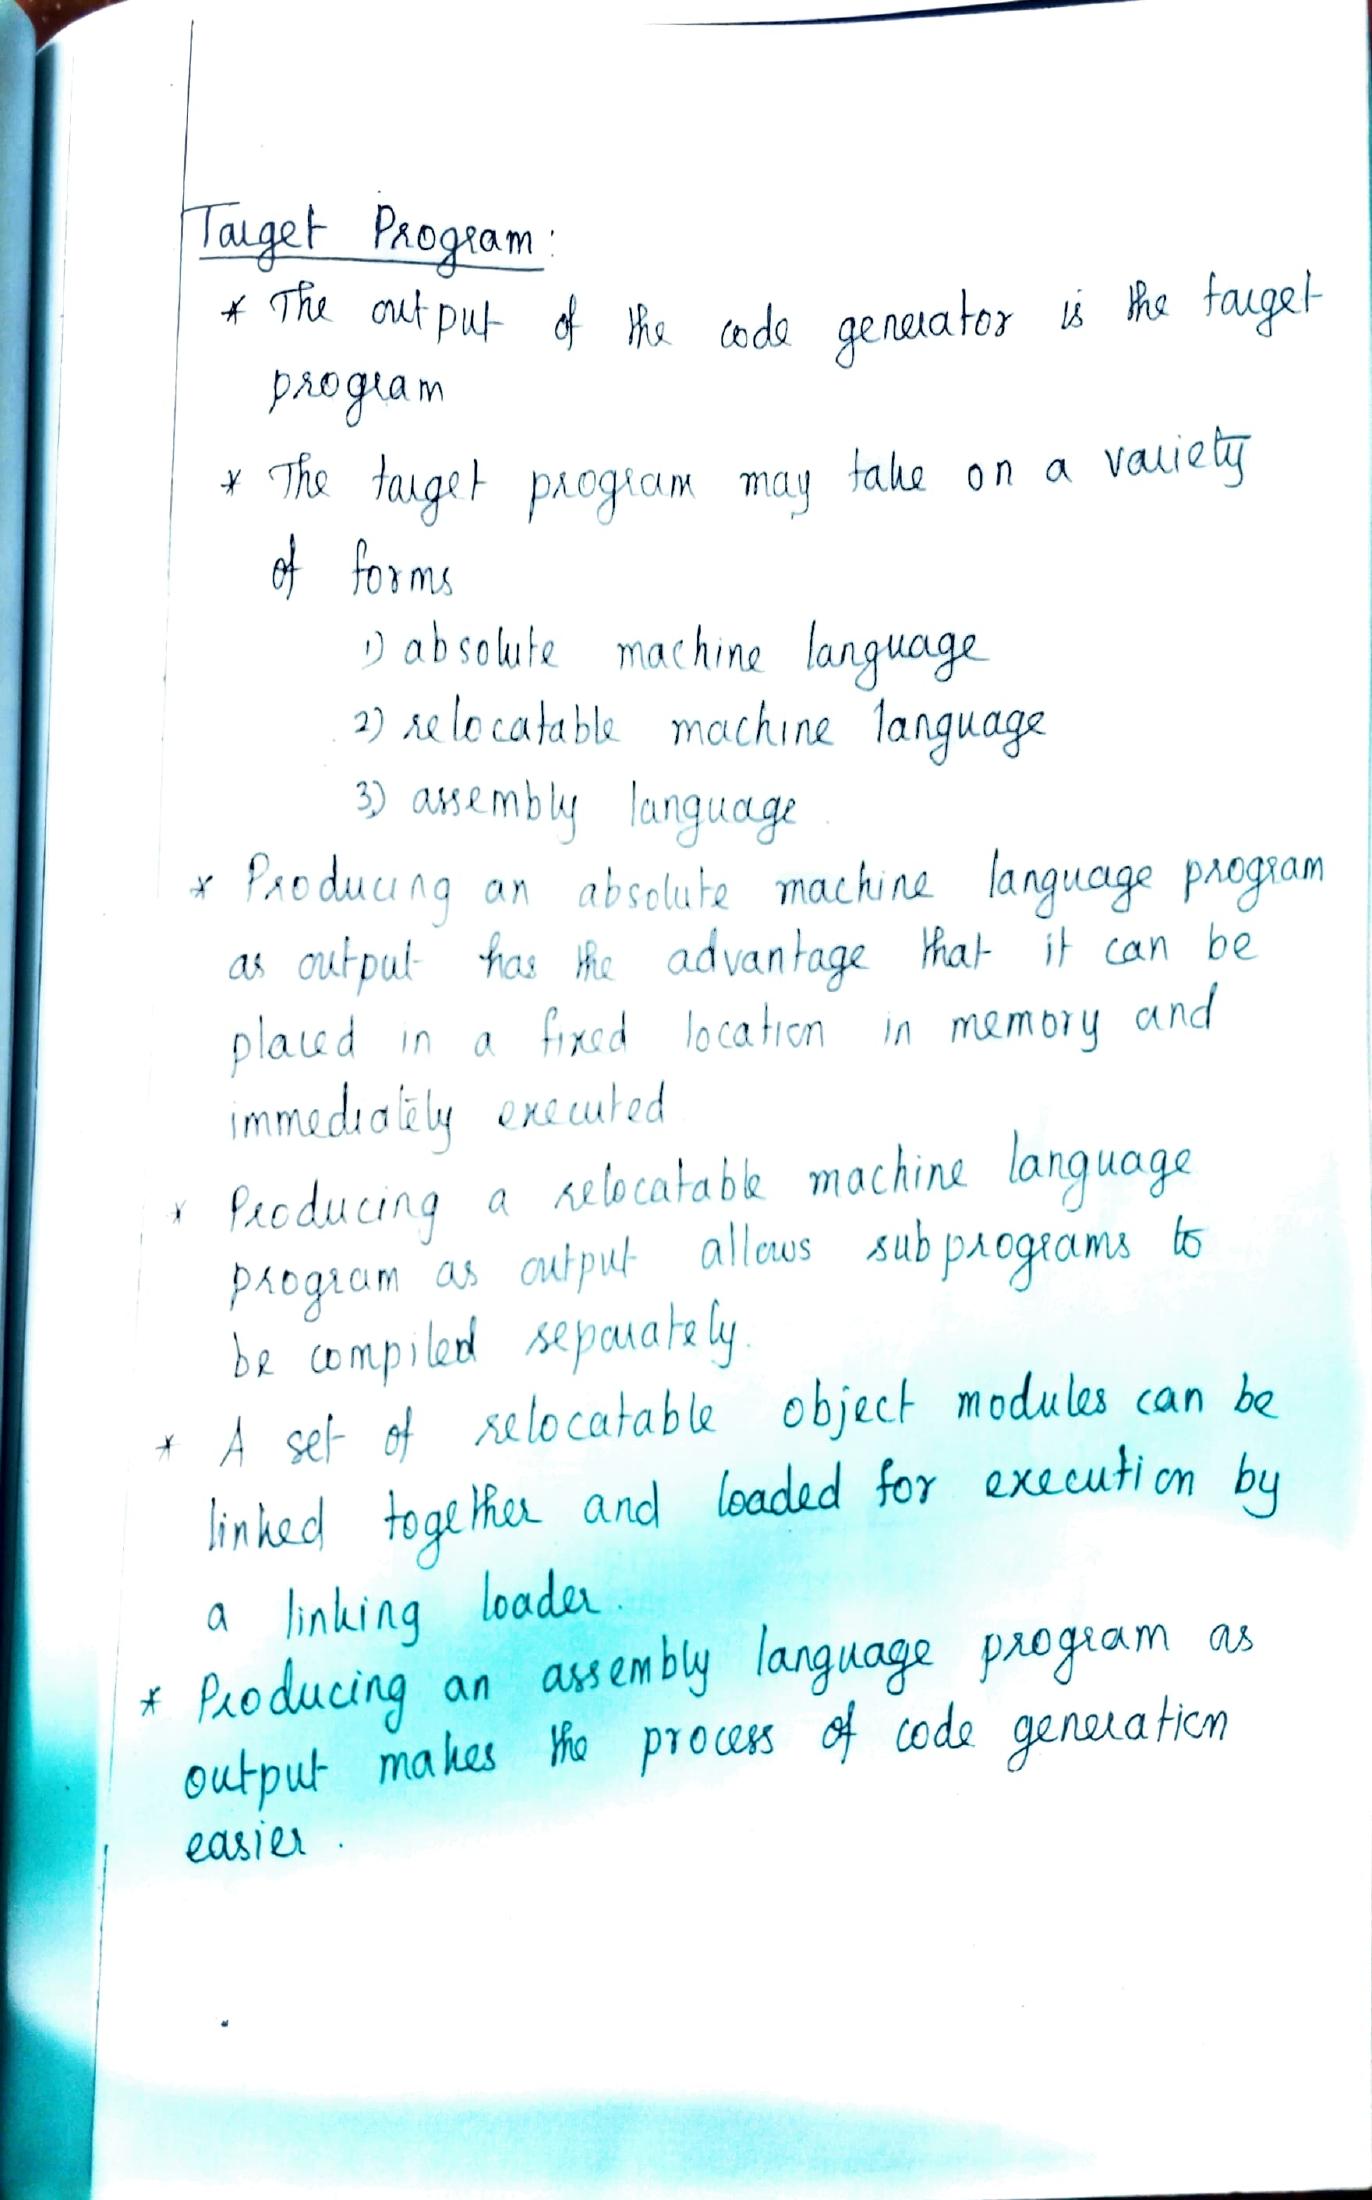 Target Program:
* The output of the code generator is the target
program
* The target program may take on a variety
of forms
1) absolute machine language
2) relocatable machine language
3) assembly language.
* Producing an absolute machine language program
as output has the advantage that it can be
placed in a fixed location in memory and
immediately executed
* Producing a relocatable machine language
program as output allows subprograms to
be compiled separately.
* A set of relocatable object modules can be
linked together and loaded for execution by
a linking loader.
* Producing an assembly language program as
output makes the process of code generation
easier.